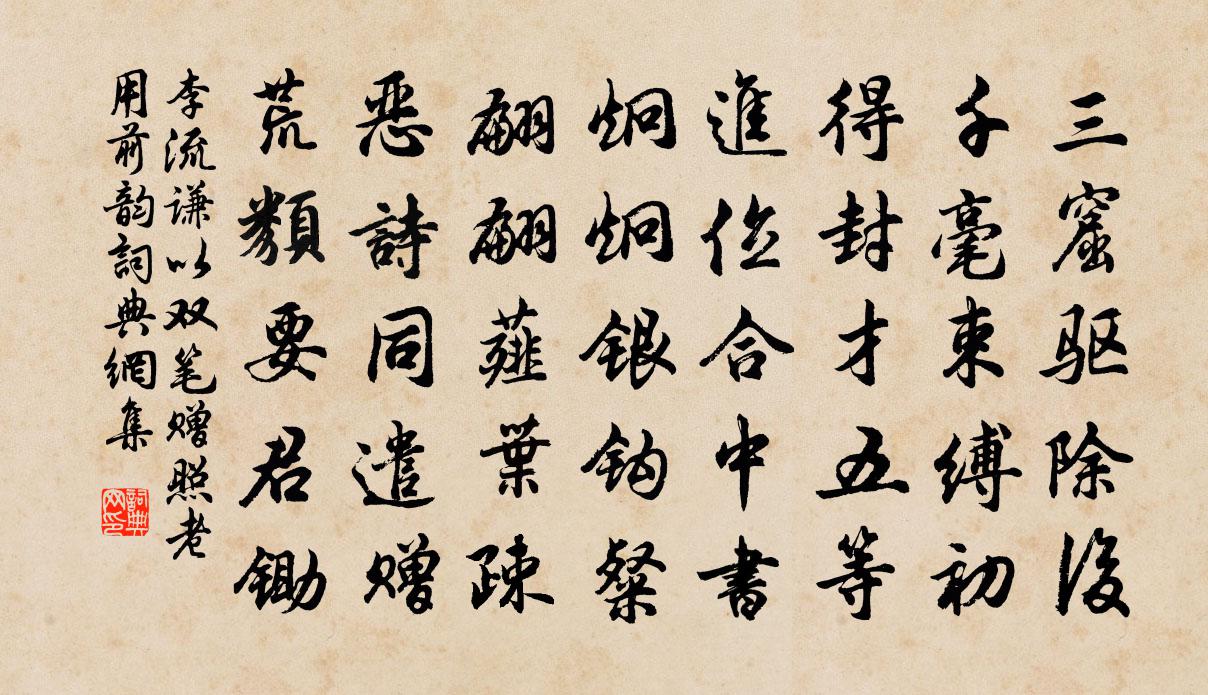 三窟驱除後
千毫束缚初
得封才五等
進位合中書
炯炯銀钩粲
翩翩薤葉疎
恶詩同遣赠
荒纇要君锄
李流谦以双笔赠照老
用前韵詞典網集
詞典网印